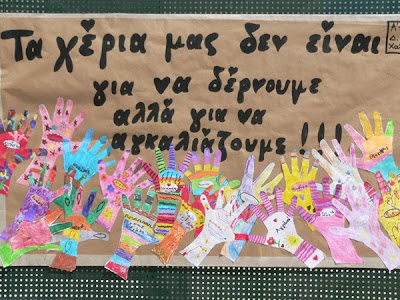 Τα χέρια μας δεν είναι
για να δέρνουμε
αλλά για να
αγκαλιάζουμε !!!